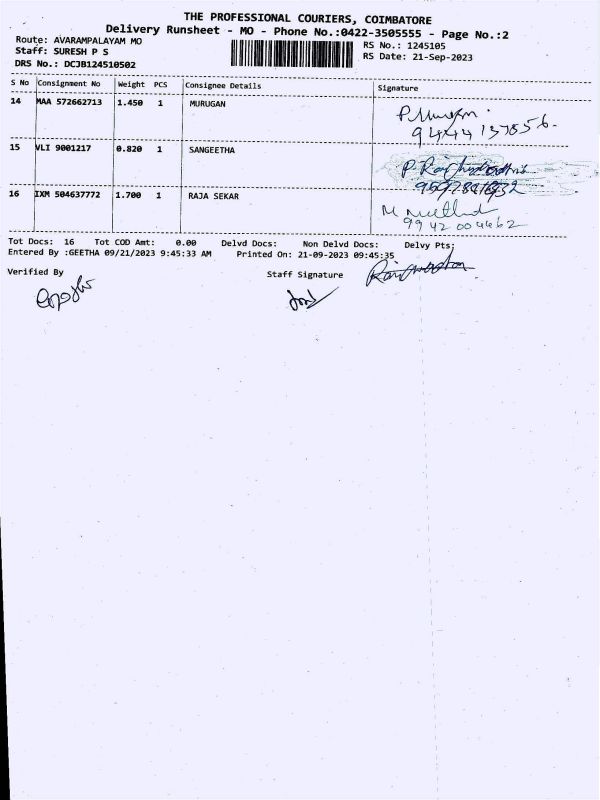 THE PROFESSIONAL COURIERS, COIMBATORE
Delivery Runsheet - MO - Phone No.:0422-3505555 - Page No.:2
Route: AVARAMPALAYAM MO
RS No.: 1245105
Staff: SURESH P S
RS Date: 21-Sep-2023
DRS No.: DCJB124510502
S No Consignment No Weight PCS Consignee Details Signature
14 MAA 572662713 1.450 1 MURUGAN
15 VLI 9001217 0.820 1 SANGEETHA
16 IXM 504637772 1.700 1 RAJA SEKAR
9942004462
Tot Docs: 16 Tot COD Amt: 0.00 Delvd Docs: Non Delvd Docs: Delvy Pts:
Entered By :GEETHA 09/21/2023 9:45:33 AM Printed On: 21-09-2023 09:45:35
Verified By Staff Signature